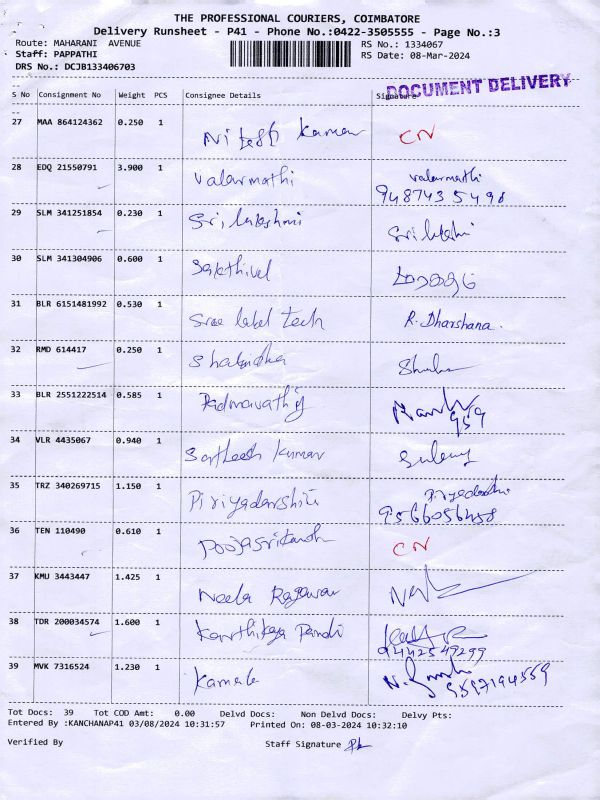 THE PROFESSIONAL COURIERS, COIMBATORE
Delivery Runsheet - P41 - Phone No.:0422-3505555 - Page No.:3
Route: MAHARANI AVENUE RS No.: 1334067
Staff: PAPPATHI RS Date: 08-Mar-2024
DRS No.: DCJB133406703
DOCUMENT DELIVERY
S No Consignment No Weight PCS Consignee Details Signature
27 MAA 864124362 0.250 1 Nitesh Kumar CN
28 EDQ 21550791 3.900 1 Valarmathi Valarmathi
9487435498
29 SLM 341251854 0.230 1 Srilakshmi
30 SLM 341304906 0.600 1 Sakthivel
31 BLR 6151481992 0.530 1 Sree label tech R. Dharshana.
32 RMD 614417 0.250 1
33 BLR 2551222514 0.585 1 Padmavathy
959
34 VLR 4435067 0.940 1 Satheesh Kumar
35 TRZ 340269715 1.150 1 Piriyadarshini
9566056458
36 TEN 110490 0.610 1 CN
37 KMU 3443447 1.425 1 Neela Ragavan
38 TDR 200034574 1.600 1 Karthikaya Pandi
9442549299
39 MVK 7316524 1.230 1 Kamala
9597194559
Tot Docs: 39 Tot COD Amt: 0.00 Delvd Docs: Non Delvd Docs: Delvy Pts:
Entered By :KANCHANAP41 03/08/2024 10:31:57 Printed On: 08-03-2024 10:32:10
Verified By Staff Signature